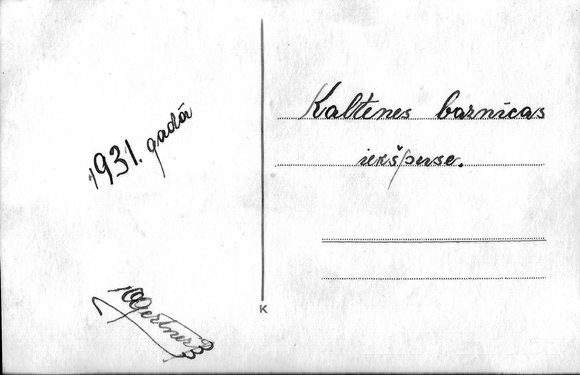 1931. gadā
Kaltenes baznīcas
iekšpuse.
K